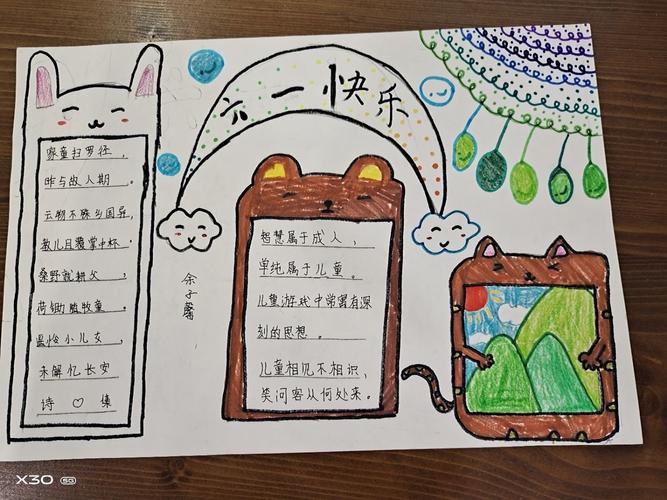 六一快乐
家童扫罗径，
昨与故人期。
云物不殊乡国异，
教儿且覆掌中杯。
桑野就耕父，
荷锄随牧童。
遥怜小儿女，
未解忆长安
诗 集
余子馨
智慧属于成人，
单纯属于儿童。
儿童游戏中常寓有深
刻的思想。
儿童相见不相识，
笑问客从何处来。
X30 5G